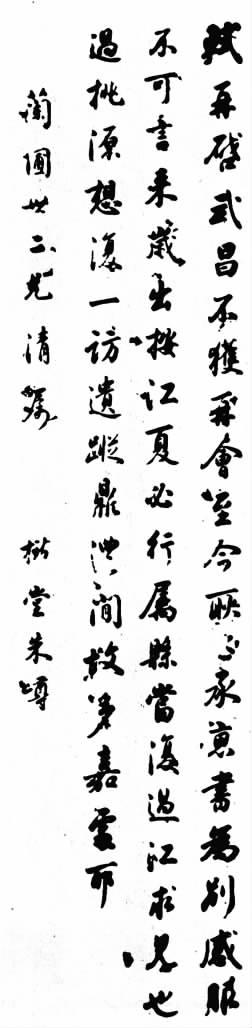 軾再啓武昌不獲再會至今耿々承惠書為別感服
不可書来歲出按江夏必行屬縣當復過江求見也
過桃源想復一訪遺蹤鼎澧間故多嘉處耶
蘭圃世二兄清囑 堂朱嶟